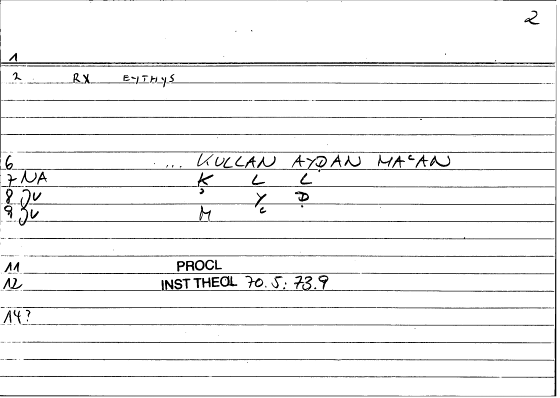 2
1
2 RX EYTHYS
6 ... KULLAN AYḌAN MAᶜAN
7 NA K L L
8 JV ʾ Y Ḍ
9 JV M ᶜ
11 PROCL
12 INST THEOL 70.5; 73.9
14?